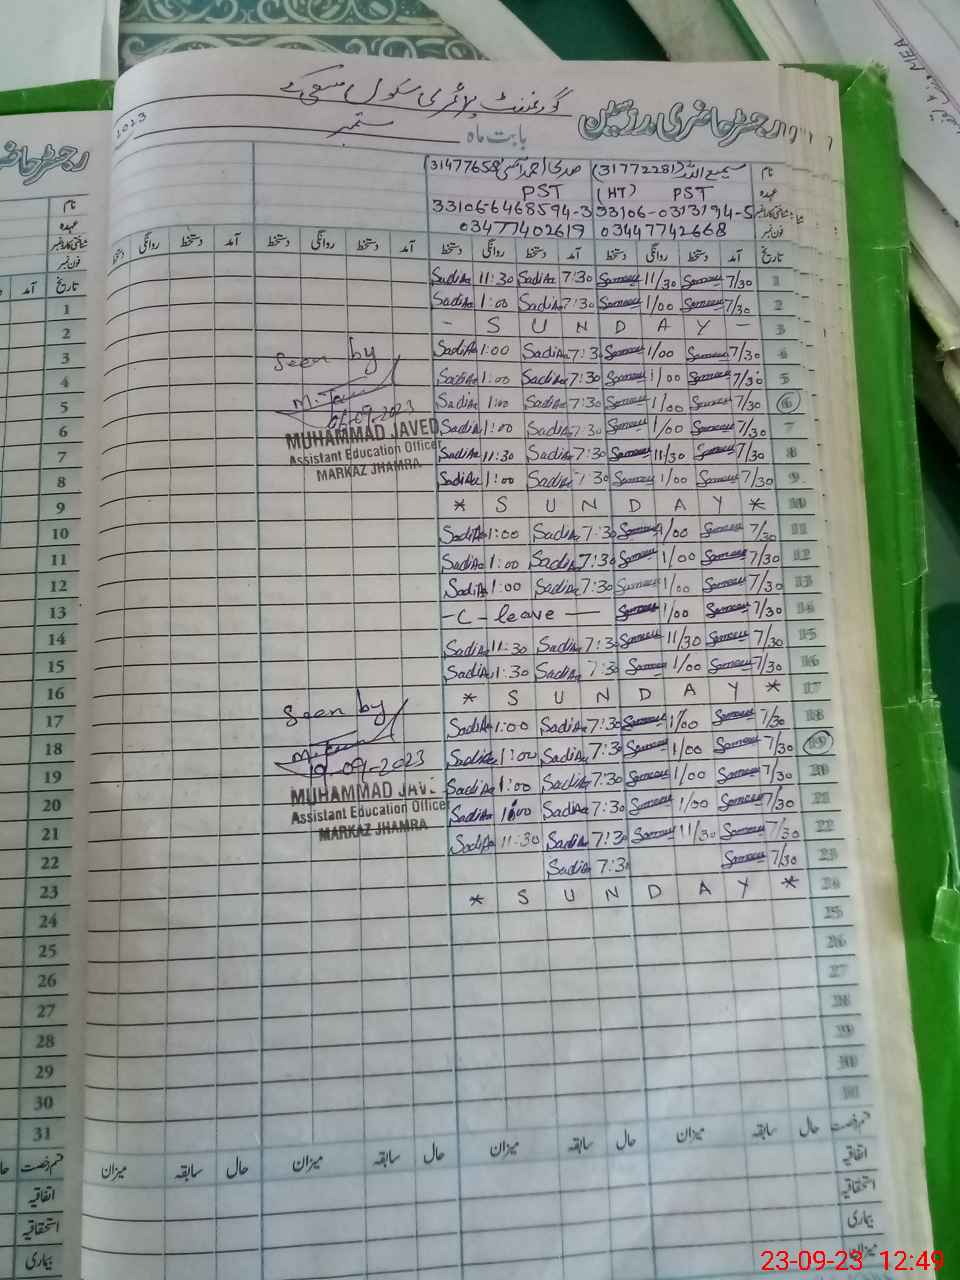 گورنمنٹ پرائمری سکول
رجسٹر حاضری مدرسین
بابت ماہ ستمبر 2023
نام سمیع اللہ (31772281) (31477658)
عہدہ PST (HT) PST
شناختی کارڈ نمبر 33106-0313194-5 33106-6468594-3
فون نمبر 03447742668 03477402619
تاریخ آمد دستخط روانگی دستخط آمد دستخط روانگی دستخط آمد دستخط روانگی دستخط آمد دستخط روانگی دستخط
1 7/30 11/30 7:30 Sadia 11:30 Sadia
2 7/30 1/00 7:30 Sadia 1:00 Sadia
3 - S U N D A Y -
4 7/30 1/00 7:3 Sadia 1:00 Sadia
5 7/30 1/00 7:30 Sadia 1:00 Sadia
6 7/30 1/00 7:30 Sadia 1:00 Sadia
7 7/30 1/00 7:30 Sadia 1:00 Sadia
8 7/30 11/30 7:30 Sadia 11:30 Sadia
9 7/30 1/00 7:30 Sadia 1:00 Sadia
10 * S U N D A Y *
11 7/30 1/00 7:30 Sadia 1:00 Sadia
12 7/30 1/00 7:30 Sadia 1:00 Sadia
13 7/30 1/00 7:30 Sadia 1:00 Sadia
14 7/30 1/00 - C - leave -
15 7/30 11/30 7:30 Sadia 11:30 Sadia
16 7/30 1/00 7:30 Sadia 1:30 Sadia
17 * S U N D A Y *
18 7/30 1/00 7:30 Sadia 1:00 Sadia
19 7/30 1/00 7:30 Sadia 1:00 Sadia
20 7/30 1/00 7:30 Sadia 1:00 Sadia
21 7/30 1/00 7:30 Sadia 1:00 Sadia
22 7/30 11/30 7:30 Sadia 11:30 Sadia
23 7/30 7:30 Sadia
24 * S U N D A Y *
25
26
27
28
29
30
31
Seen by
06-09-2023
MUHAMMAD JAVED
Assistant Education Officer
MARKAZ JHAMRA
Seen by
19-09-2023
MUHAMMAD JAV
Assistant Education Officer
MARKAZ JHAMRA
قسم رخصت حال سابقہ میزان حال سابقہ میزان حال سابقہ میزان حال سابقہ میزان
اتفاقیہ
استحقاقیہ
بیماری
میزان
رجسٹر حاضر
نام
عہدہ
شناختی کارڈ نمبر
فون نمبر
تاریخ آمد
1
2
3
4
5
6
7
8
9
10
11
12
13
14
15
16
17
18
19
20
21
22
23
24
25
26
27
28
29
30
31
قسم رخصت
اتفاقیہ
استحقاقیہ
بیماری
MEA
23-09-23 12:49